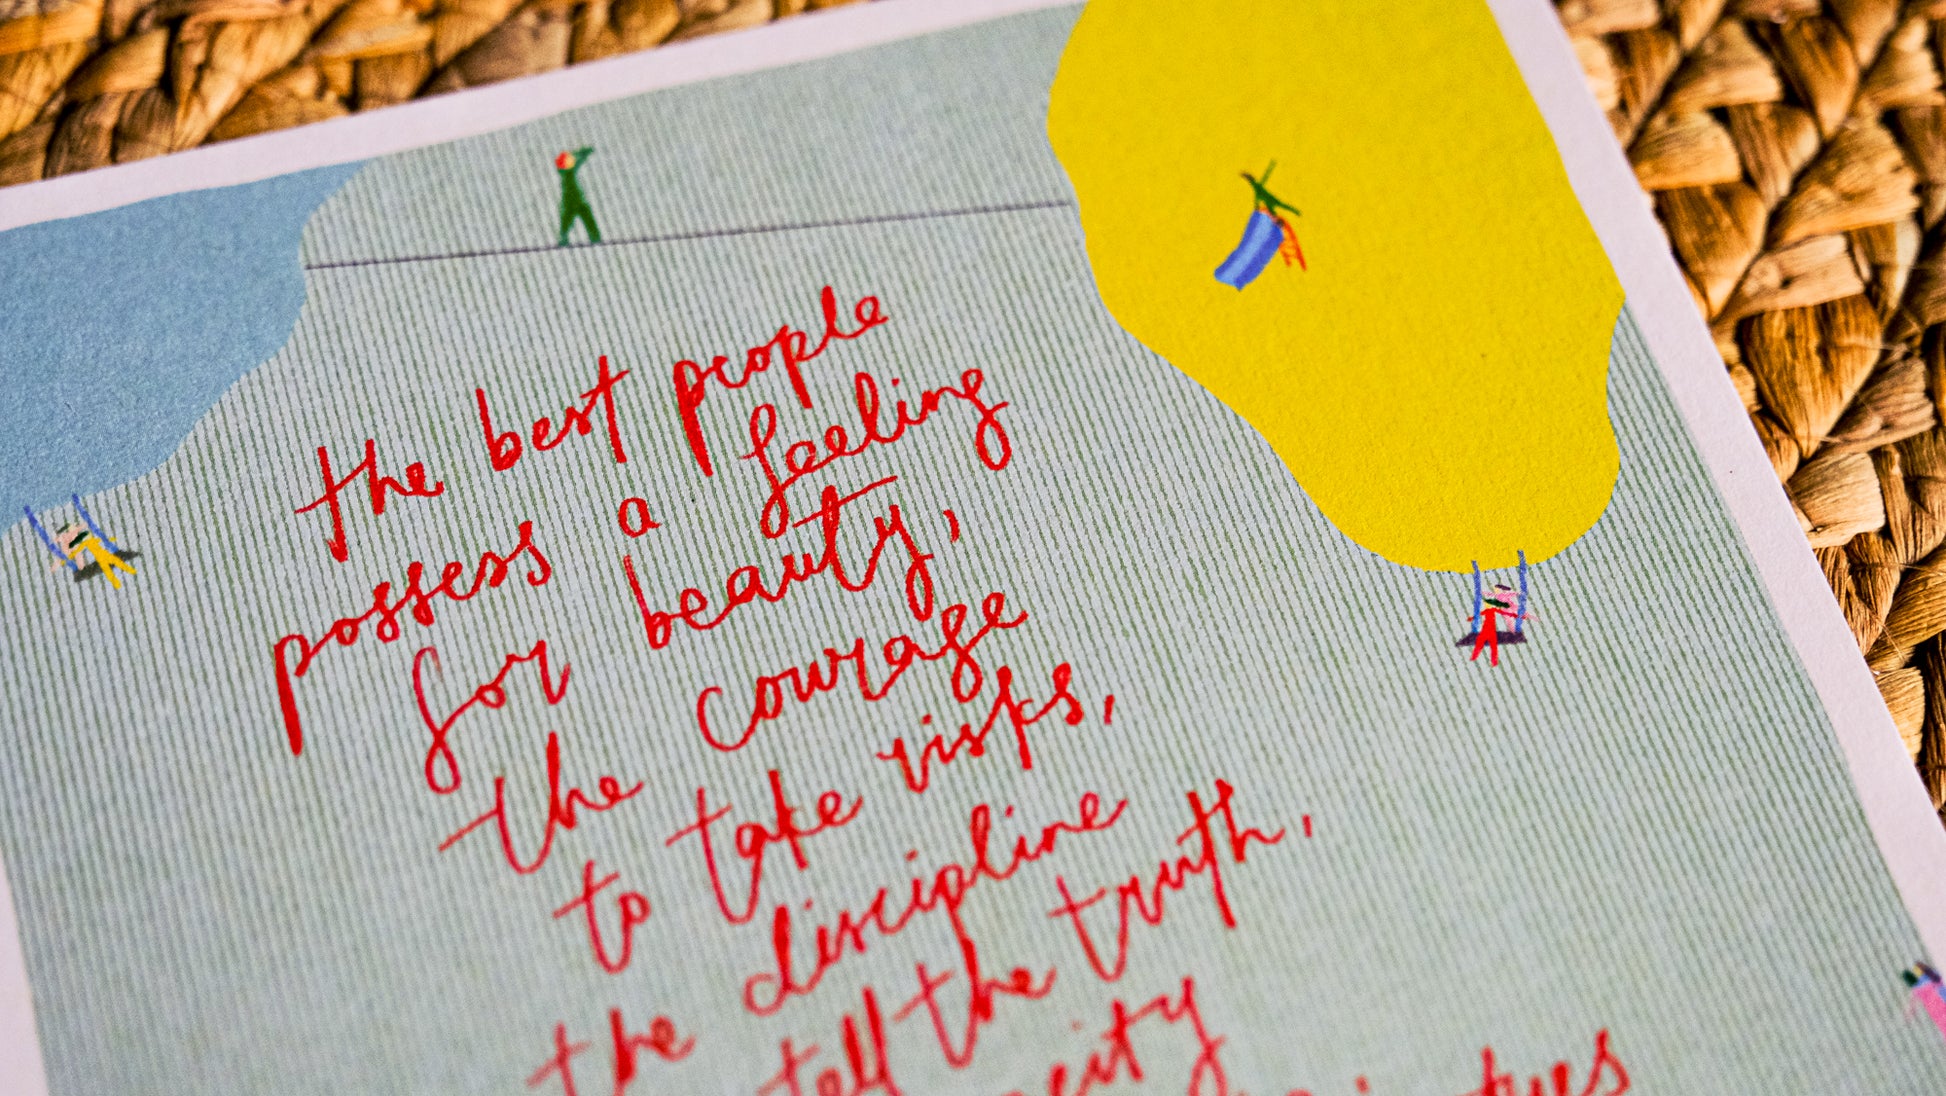 the best people
possess a feeling
for beauty,
the courage
to take risks,
the discipline
tell the truth,